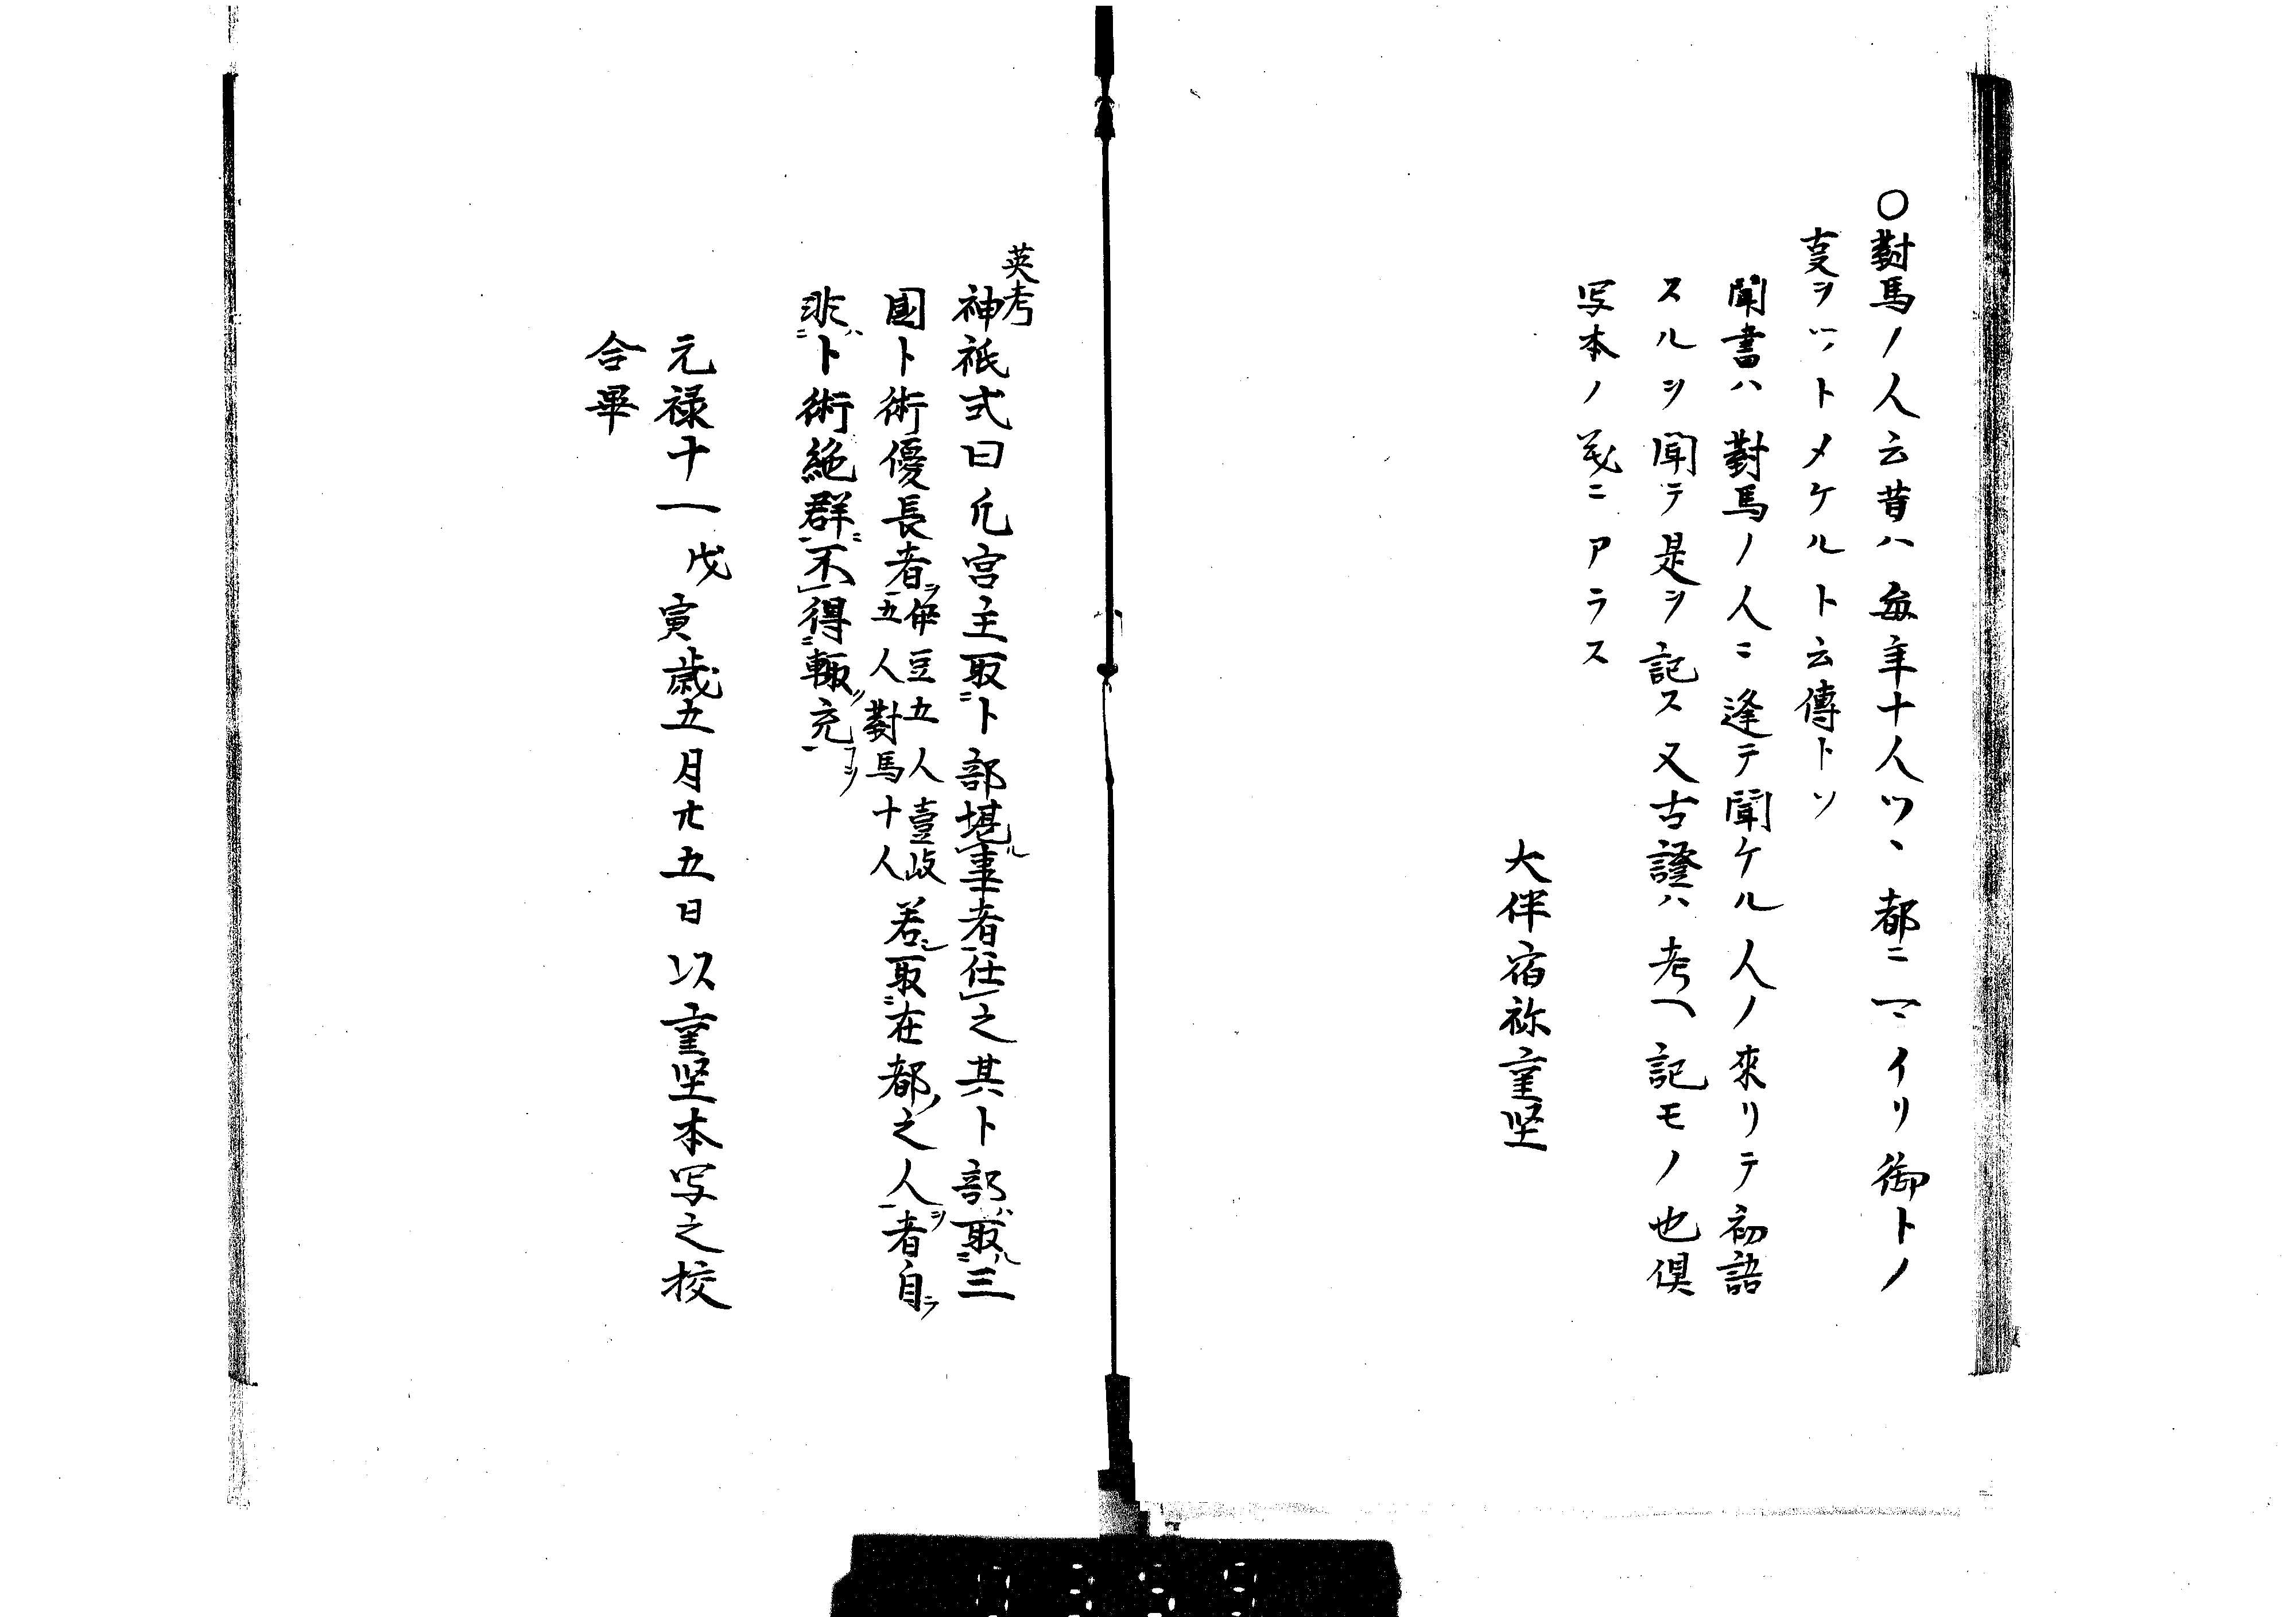 〇對馬ノ人云昔ハ毎年十人ツヽ都ニマイリ御卜ノ
叓ヲツトメケルト云傳トソ
聞書ハ對馬ノ人ニ逢テ聞ケル人ノ來リテ初語
スルヲ聞テ是ヲ記ス又古證ハ考ヘ記モノ也倶
写本ノ義ニアラス
大伴宿祢重堅
英考
神祇式曰凢宮主取㆓卜部堪㆑事者㆒任㆑之其卜部ハ取㆓三
國卜術優長者㆒ヲ伊豆五人壹岐
五人對馬十人若シ取㆓在都ノ之人㆒ヲ者自ラ
非ハ㆓卜術絶群㆒ニ不㆑得㆓輙ク充㆒コヲ
元禄十一戊寅歳五月廿五日以重堅本写之校
合畢